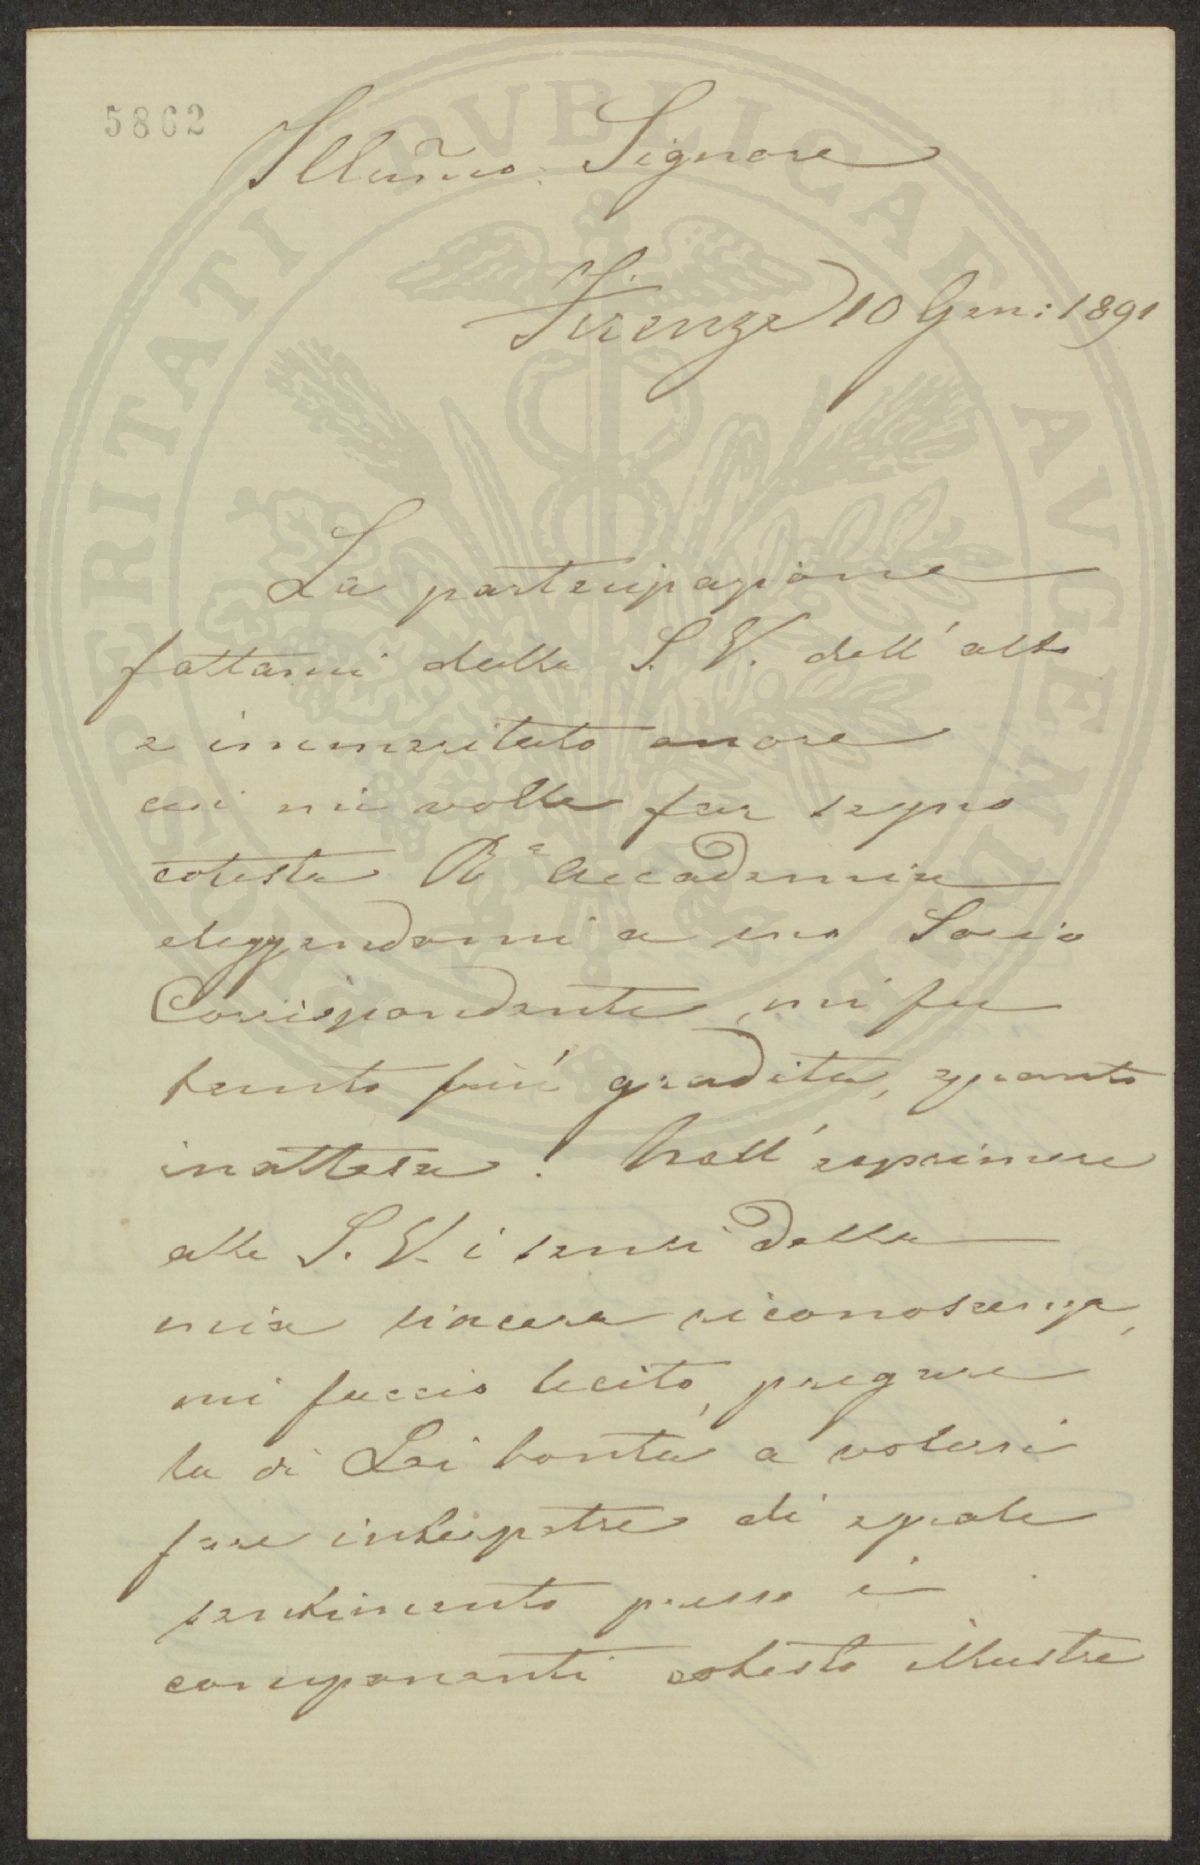 5862
Illũmo. Signore
Firenze 10 Gen: 1891
La partecipazione
fattami dalla S. V. dell' alto
e immeritato onore
cui mi volle far segno
cotesta R.a Accademia
eleggendomi a suo Socio
Corrispondente, mi fu
tanto più gradita, quanto
inattesa. Nell' esprimere
alla S. V. i sensi della
mia sincera riconoscenza,
mi faccio lecito, pregare
la di Lei bontà a volersi
fare interpetre di eguale
sentimento presso i
componenti cotesto illustre
PROSPERITATI PVBLICAE AVGENDAE